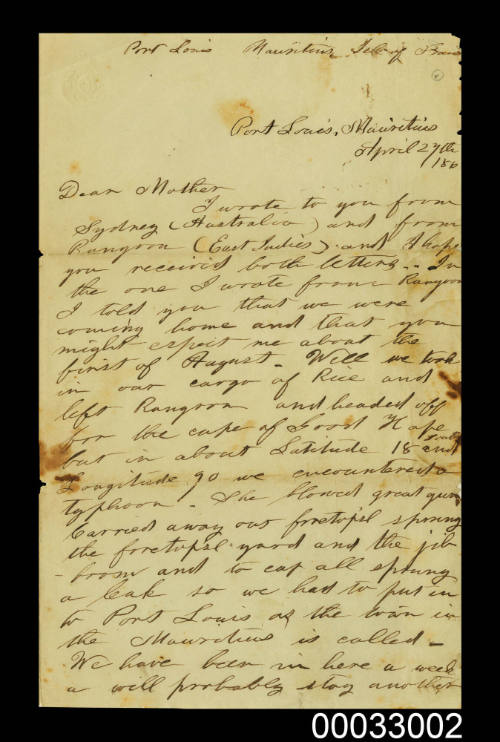 Port Louis Mauritius Isle of
Port Louis, Mauritius
April 27th
186
Dear Mother
I wrote to you from
Sydney (Australia) and from
Rangoon (East Indies) and I hope
you received both letters.. In
the one I wrote from Rangoon
I told you that we were
coming home and that you
might expect me about the
first of August - Well we took
in our cargo of Rice and
left Rangoon and headed off
for the cape of Good Hope
but in about Latitude 18 South and
Longitude 90 we encountered a
typhoon - She blowed great guns
Carried away our foretopsl sprung
the foretopsl yard and the jib
-boom and to cap all sprung
a leak so we had to put in
to Port Louis as the town in
the Mauritius is called -
We have been in here a week
a will probably stay another
00033002